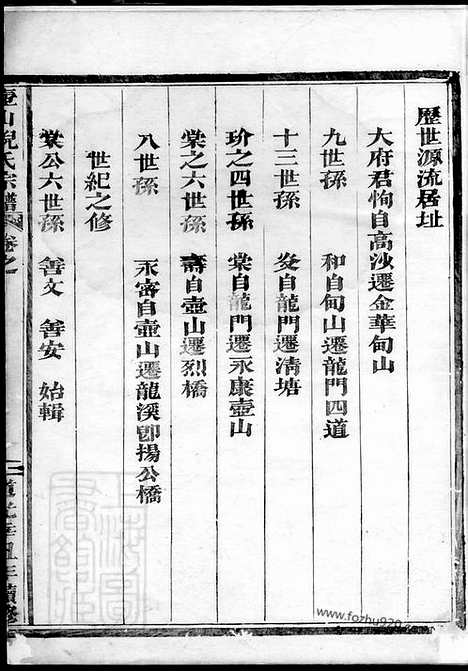 歷世源流居址
大府君恂自高沙遷金華甸山
九世孫 和自甸山遷龍門四道
十三世孫 炎自龍門遷清塘
玠之四世孫 棠自龍門遷永康壺山
棠之六世孫 壽自壺山遷烈橋
八世孫 永密自壺山遷龍溪卽揚公橋
世紀之修
棠公六世孫 善文 善安 始輯
壺山倪氏宗譜 卷之一
www.fozhu920.com